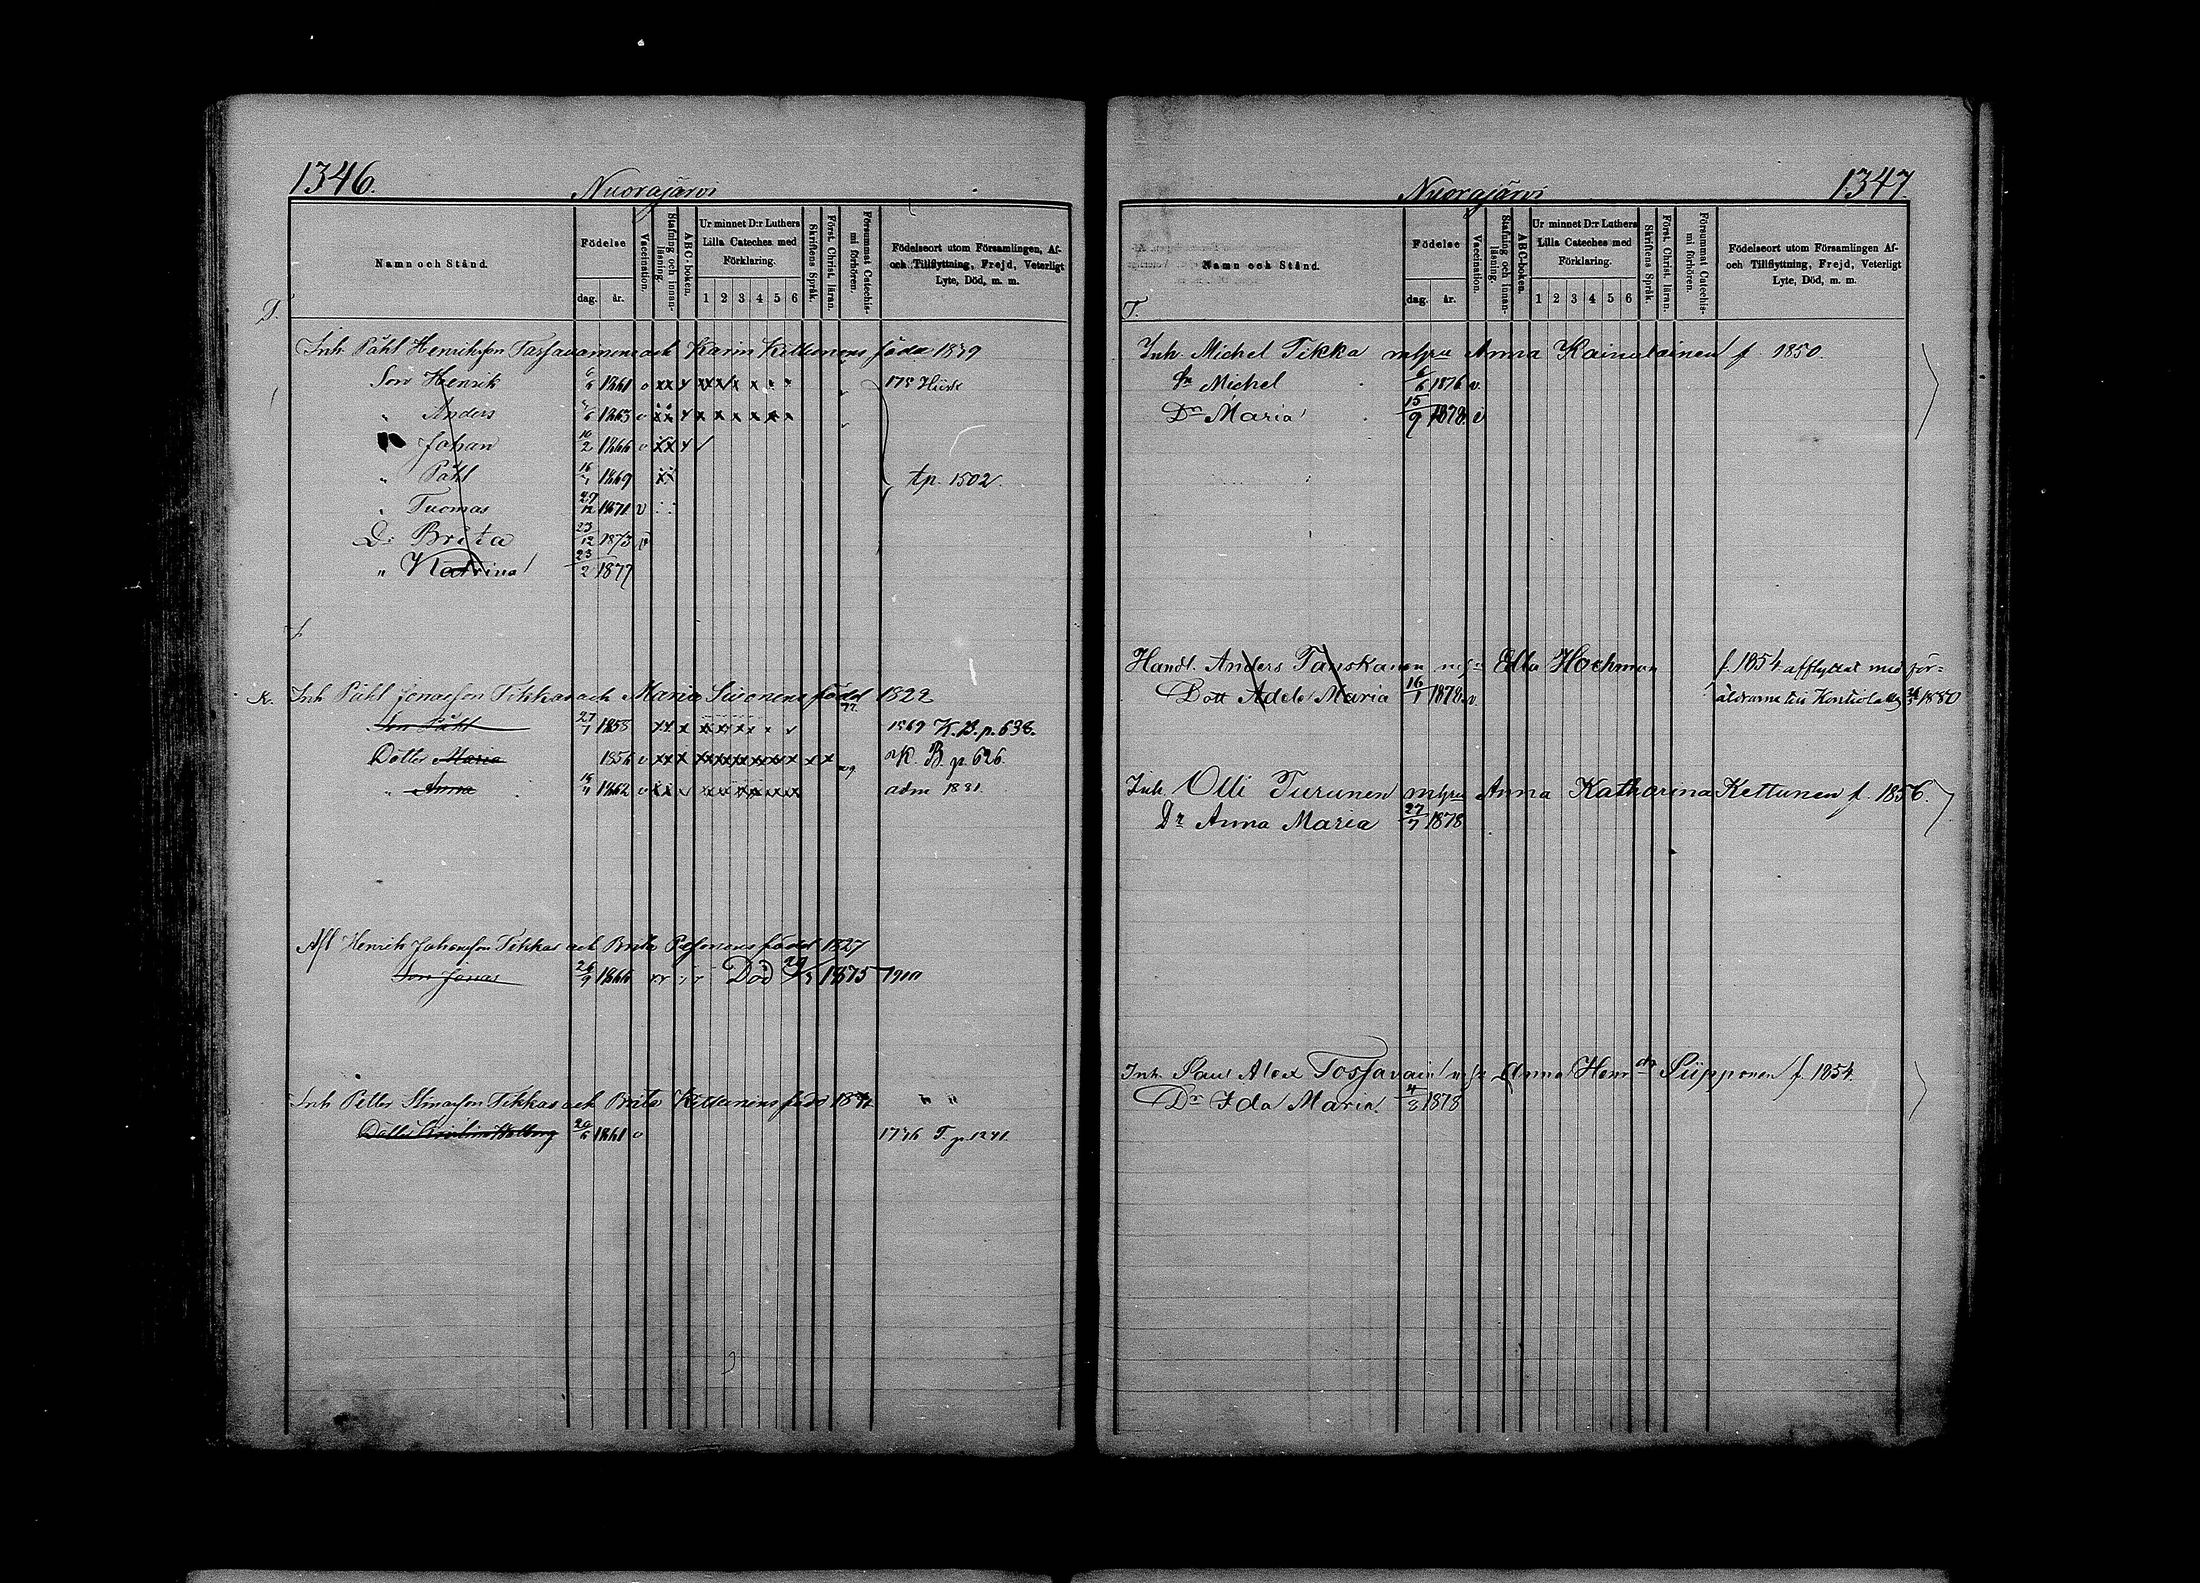 1346.
Nuorajärvi
Namn och Stånd.
Födelse
dag. år.
Vaccination.
Stafning och innan-läsning.
ABC-boken.
Ur minnet D:r Luthers
Lilla Cateches med
Förklaring.
1 2 3 4 5 6
Skriftens Språk.
Först. Christ. läran.
Försummat Catechis-mi förhören.
Födelseort utom Församlingen, Af-
och Tillflyttning, Frejd, Veterligt
Lyte, Död, m. m.
T.
Inh. Påhl Henriksson Tassavainens och Karin Kettunens föda 1839
Son Henrik 1861
" Anders 1863
" Johan 10/2 1866
" Påhl 16/1 1869
tp. 1502.
" Tuomas 27/12 1871 v
Dr Brita 23/12 1873 v
" Katrina 23/2 1877
K. Inh. Påhl Jonasson Tikkas och Maria född 1822
Son Påhl 27/1 1858 1569 K.B. p. 638.
Dotter Maria 1856 K. B. p. 626.
" Anna 1862 adm 1881.
Afl Henrik Johansson Tikkas och Brita född 1827
Son Jonas 26/9 1866 Död 1875
Inh Petter Tikkas och Brita Kettunens född
Dotter 1861 v 1746 T. p. 1241.
1347.
Nuorajärvi
Namn och Stånd.
Födelse
dag. år.
Vaccination.
Stafning och innan-läsning.
ABC-boken.
Ur minnet D:r Luthers
Lilla Cateches med
Förklaring.
1 2 3 4 5 6
Skriftens Språk.
Först. Christ. läran.
Försummat Catechis-mi förhören.
Födelseort utom Församlingen Af-
och Tillflyttning, Frejd, Veterligt
Lyte, Död, m. m.
T.
Inh. Michel Tikka m hru Anna Kainulainen f. 1850.
Sn Michel 6/6 1876 v.
Dr Maria 15/9 1878. v
Handl. Anders Tanskanen Ella Hochman f. 1854 afflyttat med för-
Dott Adele Maria 16/1 1878 v. äldrarne till Kontiolaks 1880
Inh. Olli Turunen m hru Anna Katharina Kettunen f. 1856.
Dr Anna Maria 27/7 1878
Inh. Paul Alex Tossavain Anna Henr dr Piipponen f. 1854.
Dr Ida Maria. 4/3 1878